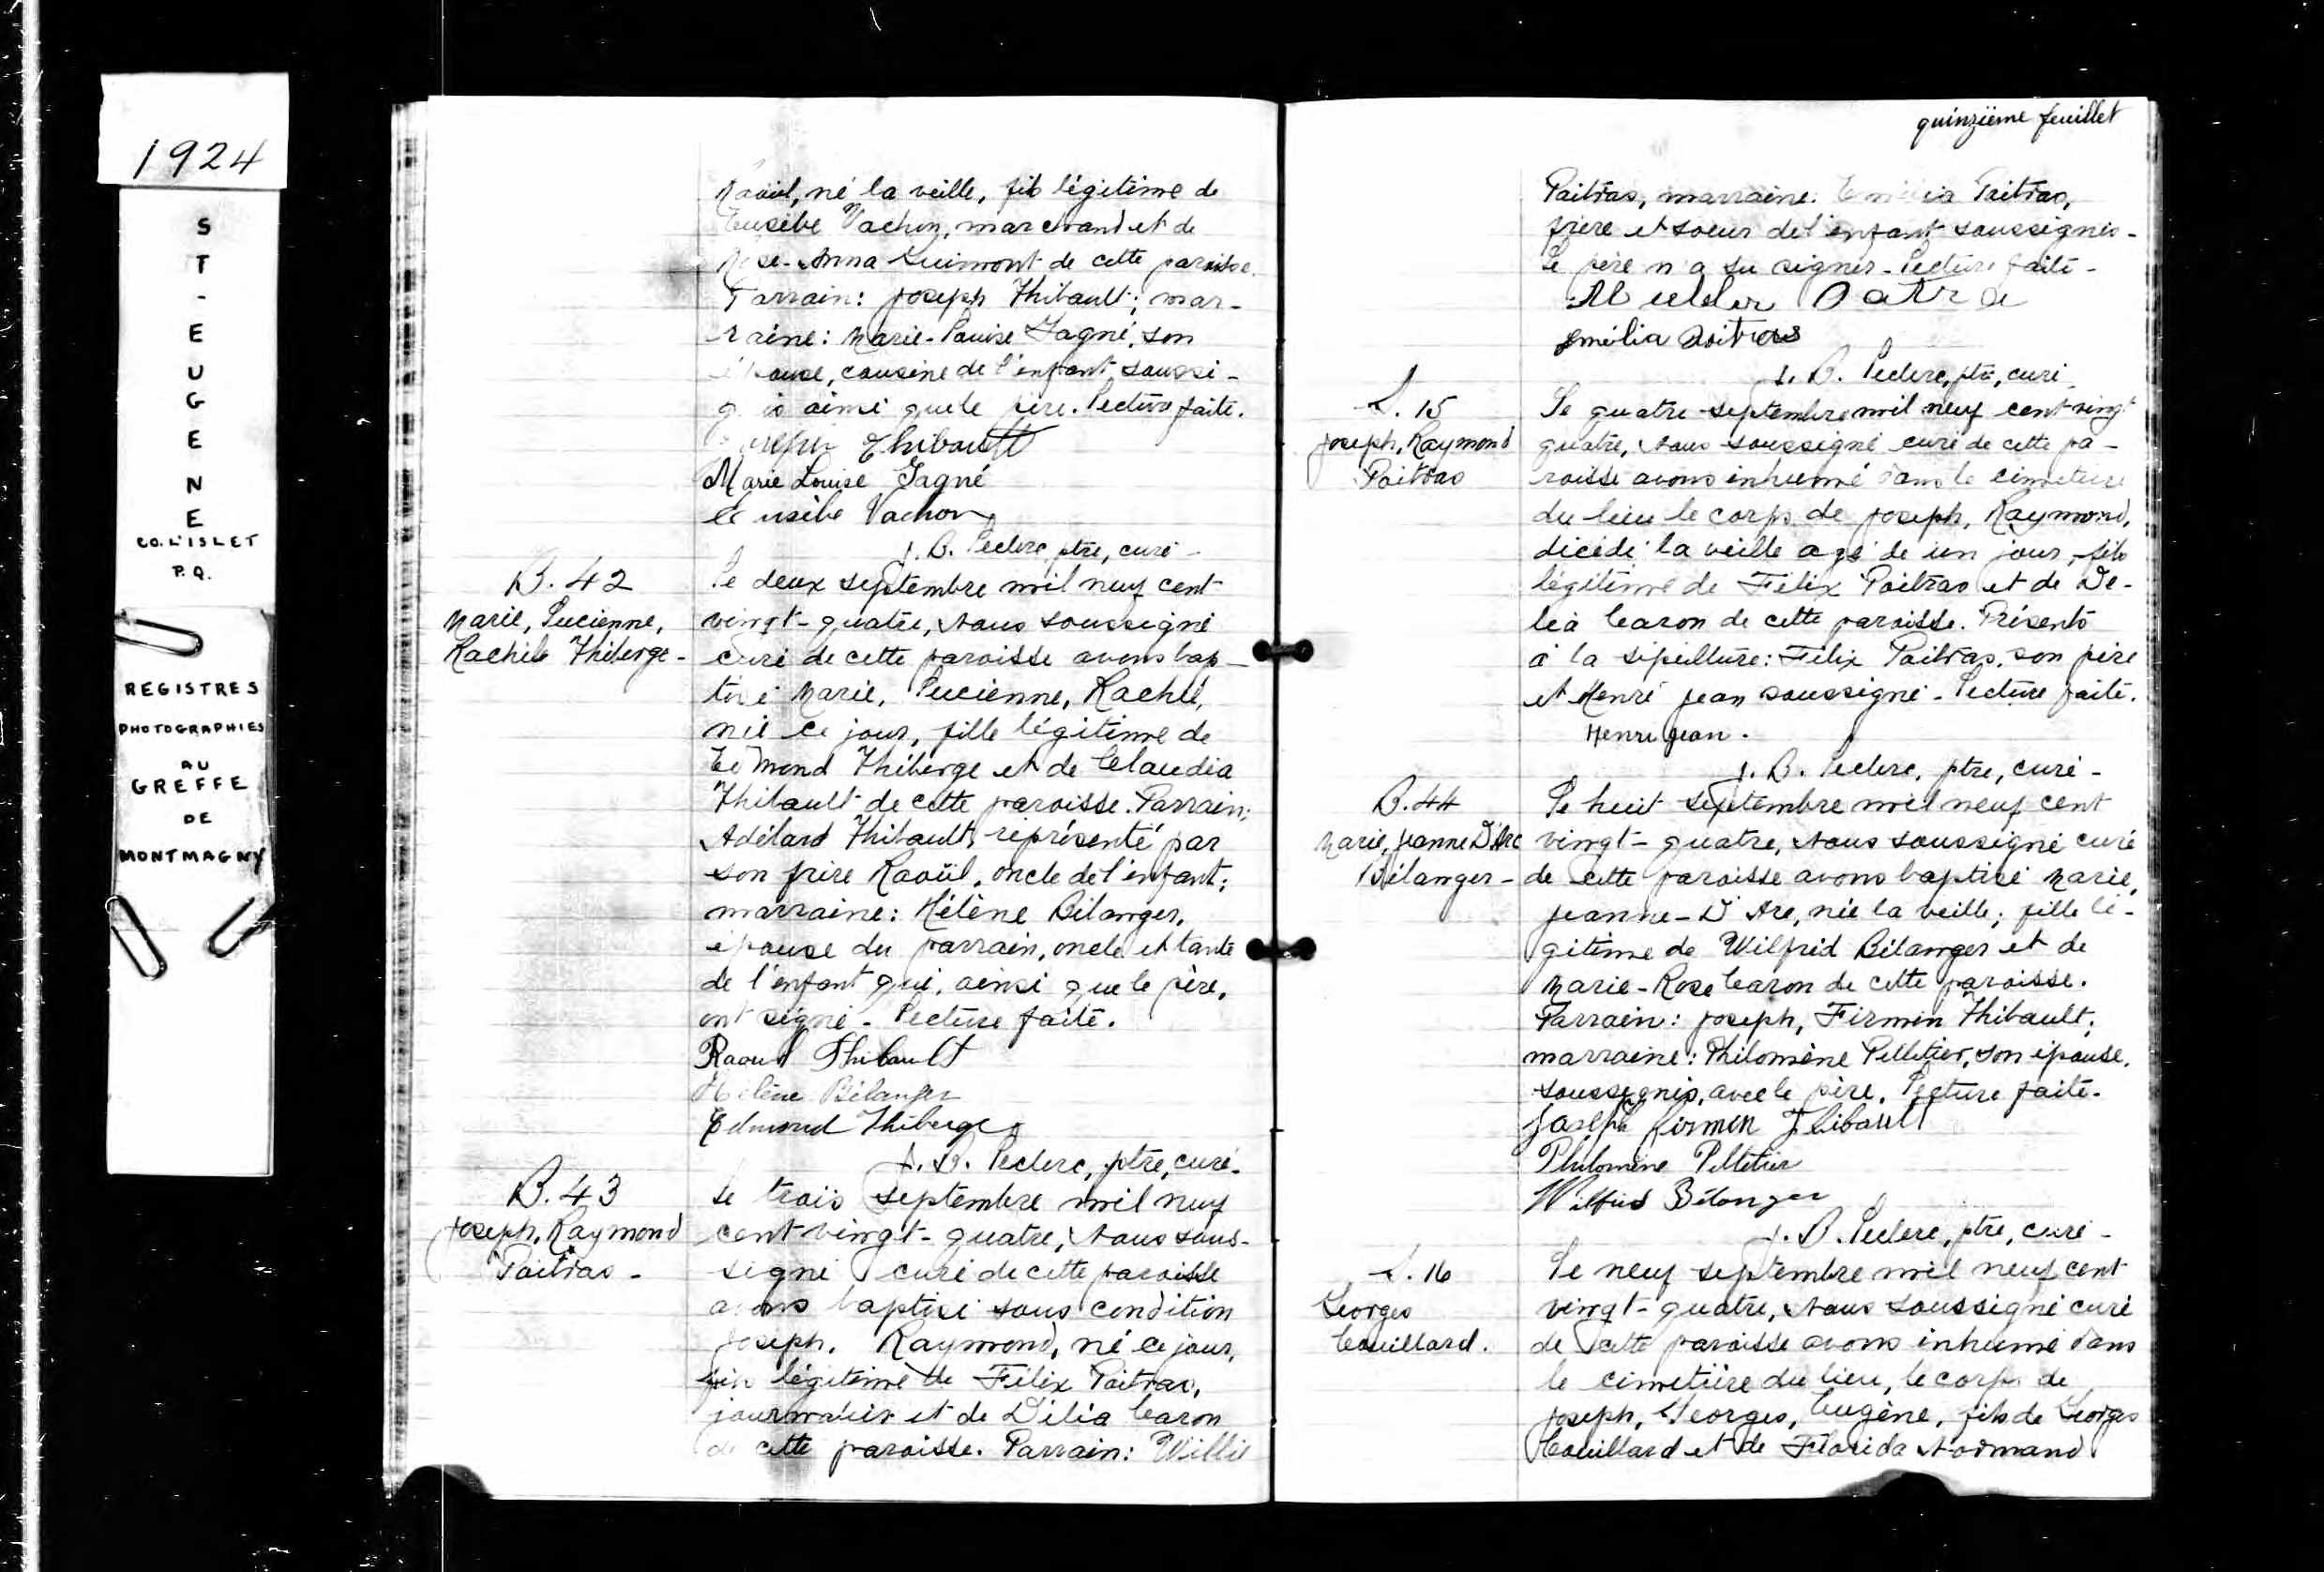 1924
ST-EUGENE
CO. L'ISLET
P.Q.
REGISTRES
PHOTOGRAPHIES
AU
GREFFE
DE
MONTMAGNY
Raoul, né la veille, fils légitime de
Eusèbe Vachon, marchand et de
Rose-Anna Guimont de cette paroisse.
Parrain: Joseph Thibault; mar-
raine: Marie-Louise Gagné, son
épouse, cousine de l'enfant soussi-
gnés ainsi que le père. Lecture faite.
Joseph Thibault
Marie Louise Gagné
Eusèbe Vachon
J. B. Leclerc, ptre, curé-
B. 42
Marie, Lucienne,
Rachèle Thiberge-
Le deux septembre mil neuf cent
vingt-quatre, Nous soussigné
curé de cette paroisse avons bap-
tisé Marie, Lucienne, Rachèle,
née ce jour, fille légitime de
Edmond Thiberge et de Claudia
Thibault de cette paroisse. Parrain:
Adélard Thibault, représenté par
son frère Raoül, oncle de l'enfant;
marraine: Hélène Bélanger,
épouse du parrain, oncle et tante
de l'enfant qui, ainsi que le père,
ont signé - Lecture faite.
Raoul Thibault
Hélène Bélanger
Edmond Thiberge
J. B. Leclerc, ptre, curé-
B. 43
Joseph, Raymond
Poitras -
Le trois septembre mil neuf
cent vingt-quatre, Nous sous-
signé curé de cette paroisse
avons baptisé sous condition
Joseph, Raymond, né ce jour,
fils légitime de Félix Poitras,
journalier et de Délia Caron
de cette paroisse. Parrain: Willie
quinzième feuillet
Poitras, marraine: Emélia Poitras,
frère et soeur de l'enfant soussignés-
Le père n'a su signer - Lecture faite -
Emélia Poitras
J. B. Leclerc, ptre, curé
S. 15
Joseph, Raymond
Poitras
Le quatre septembre mil neuf cent vingt
quatre, Nous soussigné curé de cette pa-
roisse avons inhumé dans le cimetière
du lieu le corps de Joseph, Raymond,
décédé la veille agé de un jour, fils
légitime de Félix Poitras et de Dé-
lia Caron de cette paroisse. Présents
à la sépulture: Félix Poitras, son père
et Henri Jean soussigné - Lecture faite.
Henri Jean.
J. B. Leclerc, ptre, curé -
B. 44
Marie, Jeanne D'Arc
Bélanger -
Le huit septembre mil neuf cent
vingt-quatre, Nous soussigné curé
de cette paroisse avons baptisé Marie,
Jeanne-D'Arc, née la veille, fille lé-
gitime de Wilfrid Bélanger et de
Marie-Rose Caron de cette paroisse.
Parrain: Joseph, Firmin Thibault;
marraine: Philomène Pelletier, son épouse,
soussignés, avec le père. Lecture faite.
Joseph firmin Thibault
Philomène Pelletier
Wilfrid Bélanger
J. B. Leclerc, ptre, curé -
S. 16
Georges
Couillard.
Le neuf septembre mil neuf cent
vingt-quatre, Nous soussigné curé
de cette paroisse avons inhumé dans
le cimetière du lieu, le corps de
Joseph, Georges, Eugène, fils de Georges
Couillard et de Florida Normand